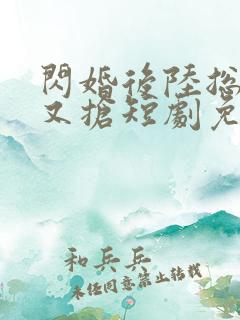 閃婚後陸總
又搶短劇免
和兵兵
未經同意禁止轉載